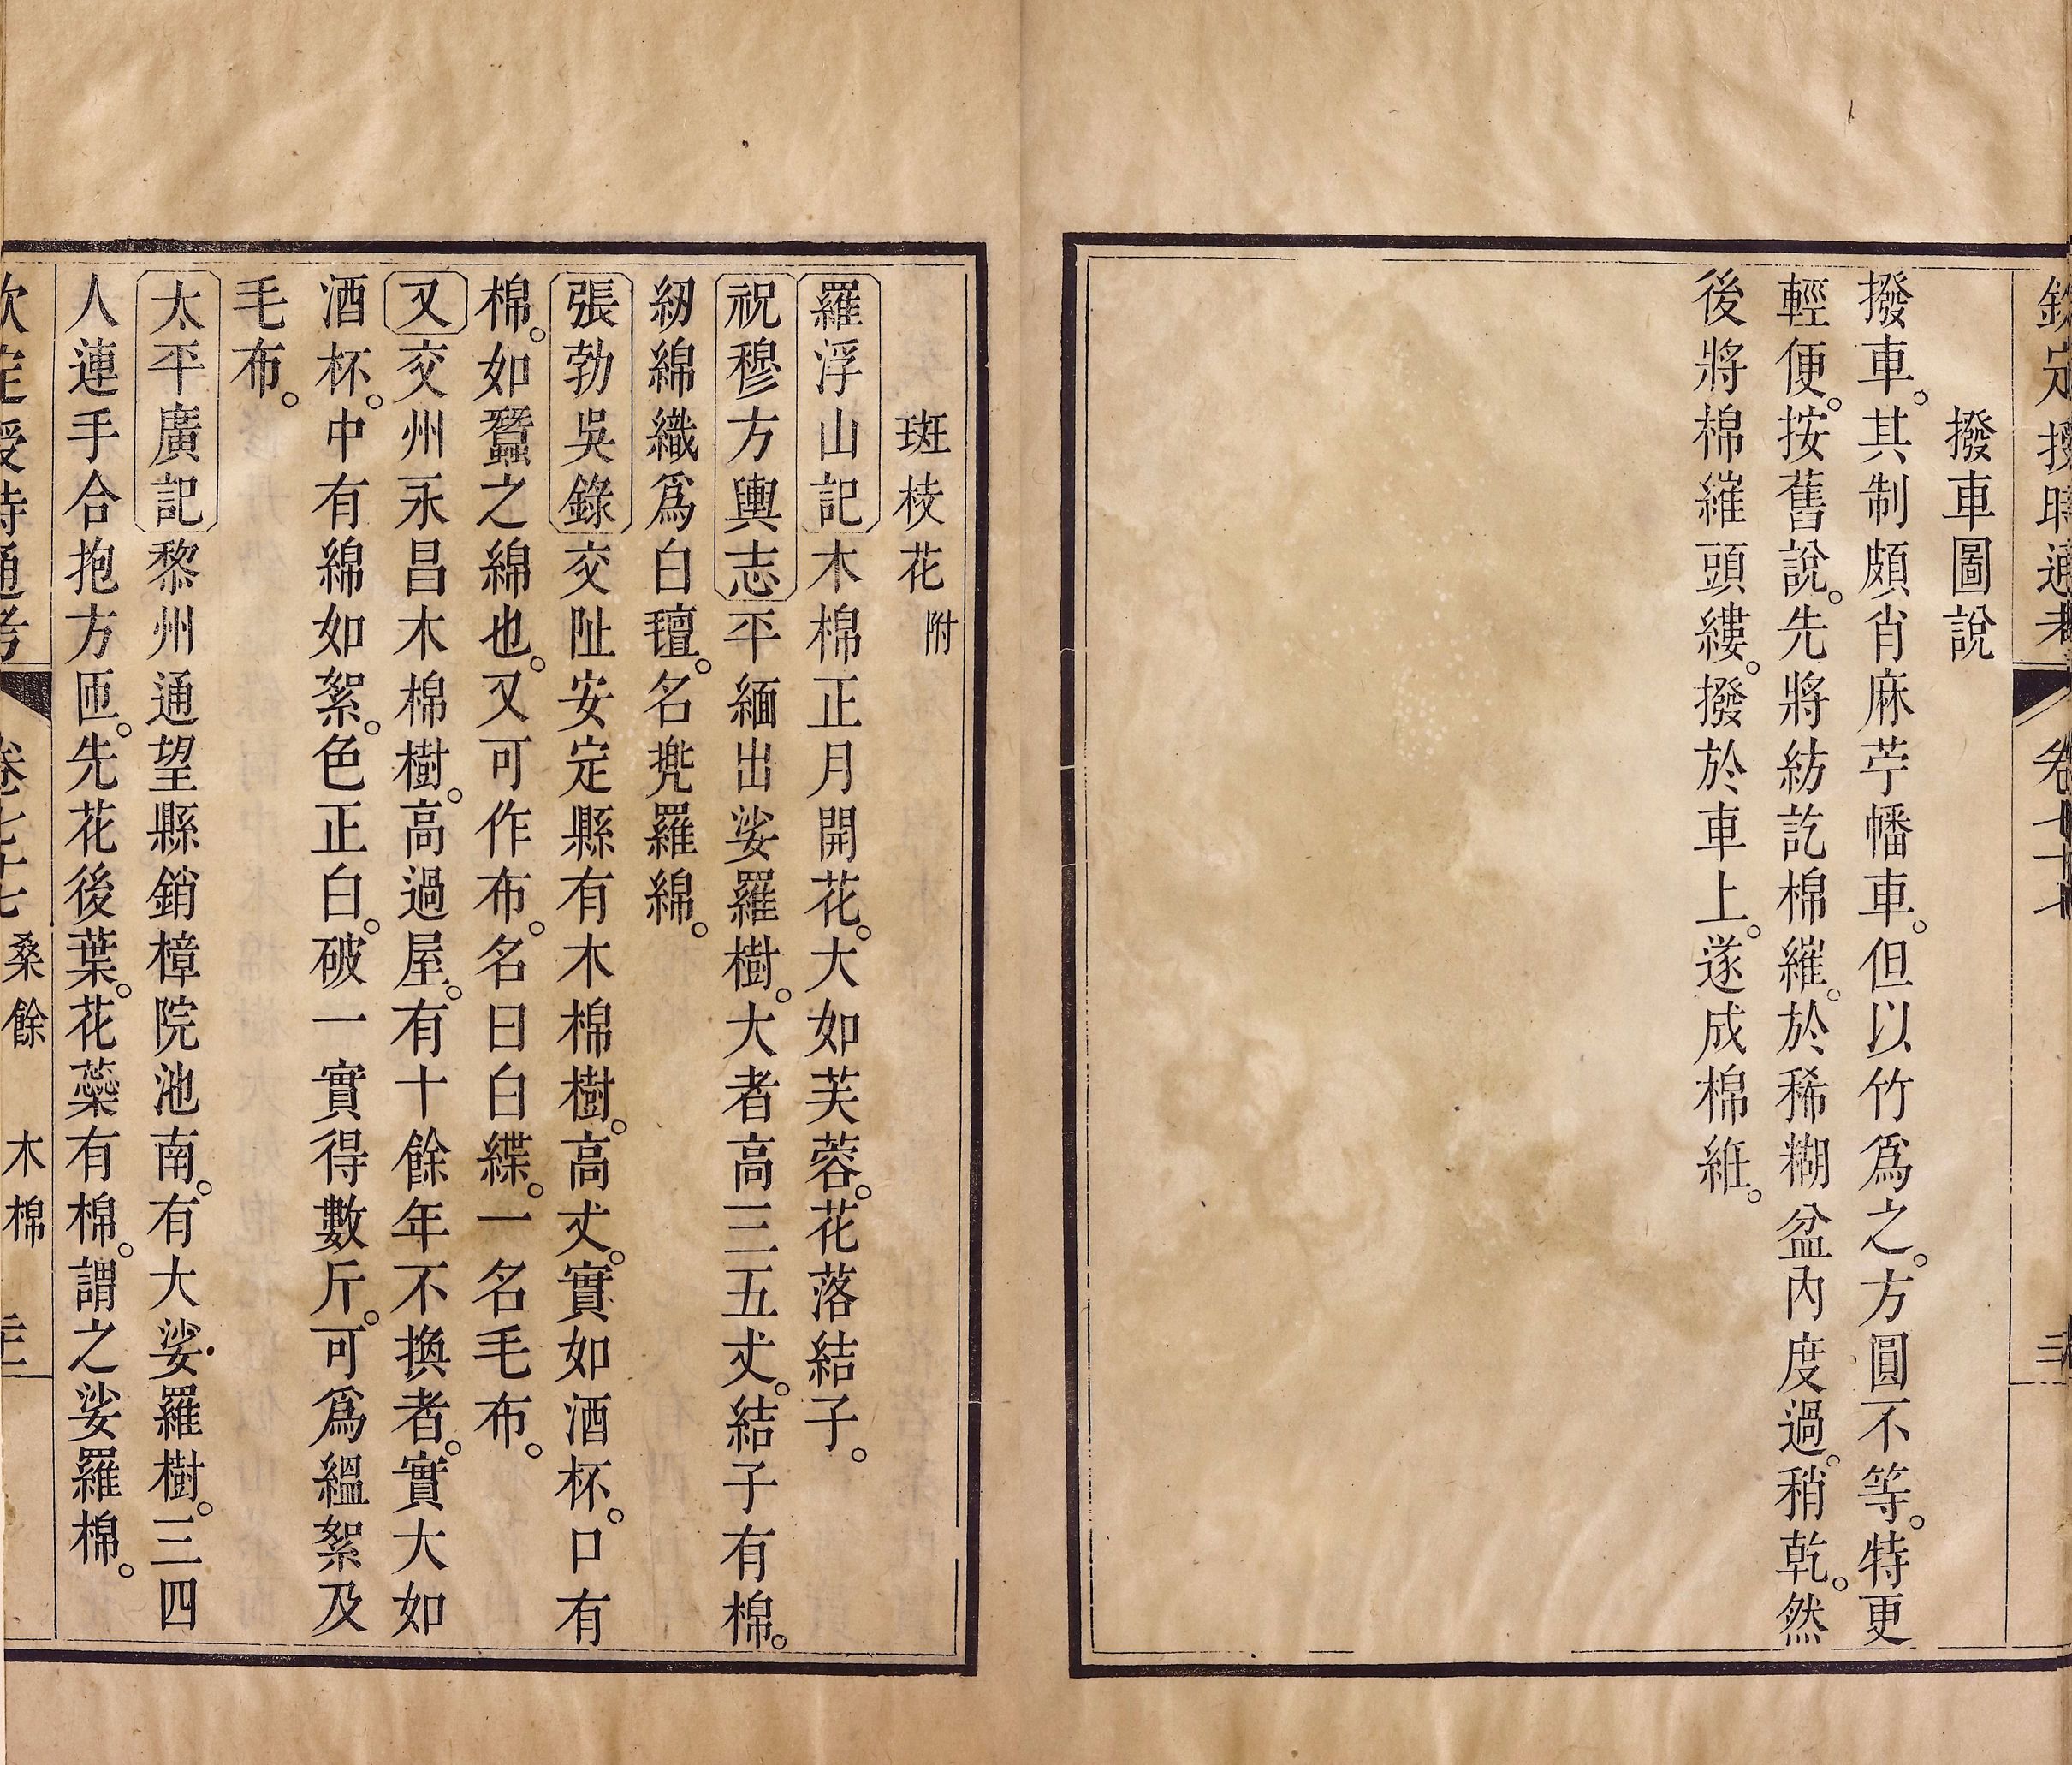 欽定授時通考 卷七十七
撥車圖說
撥車。其制頗肖麻苧幡車。但以竹爲之。方圓不等。特更
輕便。按舊說。先將紡訖棉維。於稀糊盆內度過。稍乾。然
後將棉維頭縷。撥於車上。遂成棉紝。
斑枝花附
羅浮山記木棉正月開花。大如芙蓉。花落結子。
祝穆方輿志平緬出娑羅樹。大者高三五丈。結子有棉。
紉綿織爲白氎。名兠羅綿。
張勃吳錄交阯安定縣有木棉樹。高丈。實如酒杯。口有
棉。如蠶之綿也。又可作布。名曰白緤。一名毛布。
又交州永昌木棉樹。高過屋。有十餘年不換者。實大如
酒杯。中有綿如絮。色正白。破一實得數斤。可爲縕絮及
毛布。
太平廣記黎州通望縣銷樟院池南。有大娑羅樹。三四
人連手合抱方匝。先花後葉。花蘂有棉。謂之娑羅棉。
欽定授時通考 卷七十七 桑餘 木棉